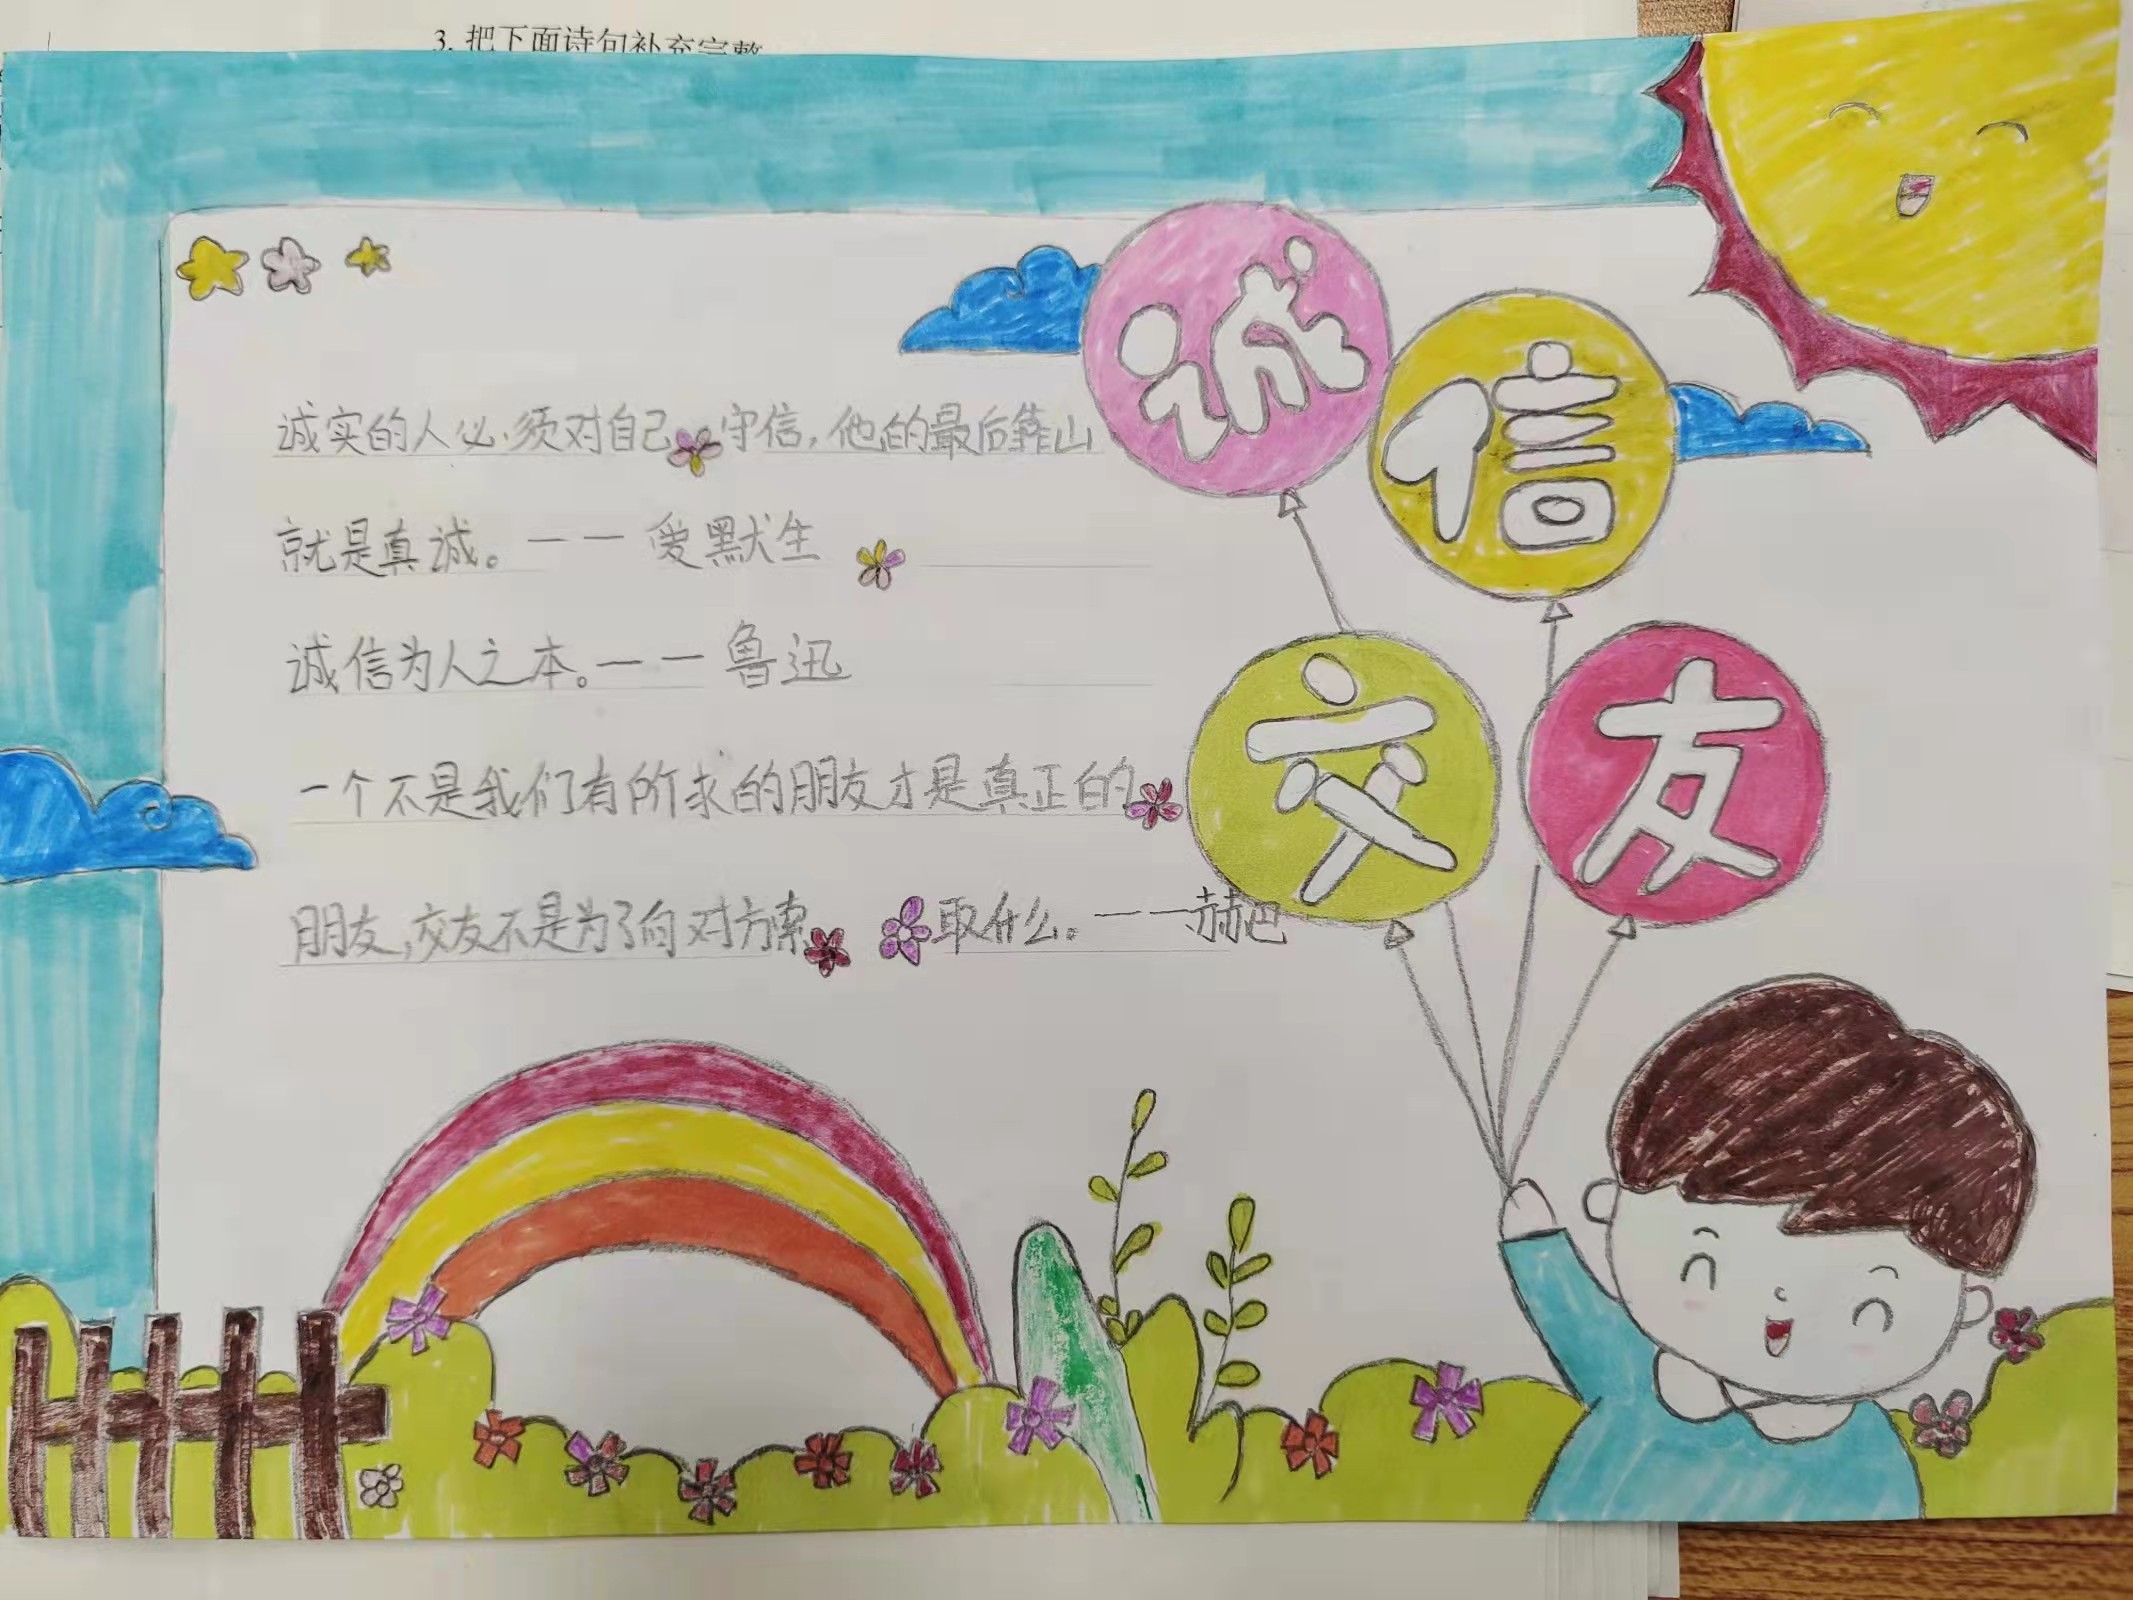 3. 把下面诗句补充完整
诚信
交友
诚实的人必须对自己守信,他的最后靠山
就是真诚。——爱默生
诚信为人之本。——鲁迅
一个不是我们有所求的朋友才是真正的
朋友,交友不是为了向对方索取什么。——赫巴